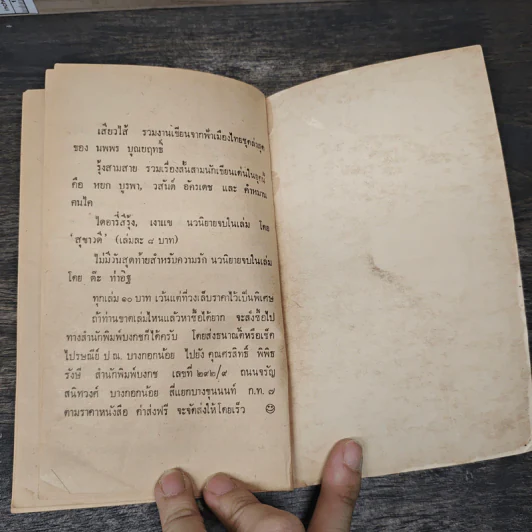 เสียวไส้ รวมงานเขียนจากฟ้าเมืองไทยชุดล่าสุด
ของ นพพร บุณยฤทธิ์
รุ้งสามสาย รวมเรื่องสั้นสามนักเขียนเด่นใน
คือ หยก บูรพา, วสันต์ อัครเดช และ คำหมาน
คนไค
ไดอารี่สีรุ้ง, เงาแข นวนิยายจบในเล่ม โดย
'สุขาวดี' (เล่มละ ๘ บาท)
ไม่มีวันสุดท้ายสำหรับความรัก นวนิยายจบในเล่ม
โดย ต๊ะ ท่าอิฐ
ทุกเล่ม ๑๐ บาท เว้นแต่ที่วงเล็บราคาไว้เป็นพิเศษ
ถ้าท่านขาดเล่มไหนแล้วหาซื้อได้ยาก จะสั่งซื้อไป
ทางสำนักพิมพ์บงกชก็ได้ครับ โดยส่งธนาณัติหรือเช็ค
ไปรษณีย์ ปณ. บางกอกน้อย ไปยัง คุณศรสิทธิ์ พิพิธ
รังษี สำนักพิมพ์บงกช เลขที่ ๒๙๒/๙ ถนนจรัญ
สนิทวงศ์ บางกอกน้อย สี่แยกบางขุนนนท์ ก.ท. ๗
ตามราคาหนังสือ ค่าส่งฟรี จะจัดส่งให้โดยเร็ว